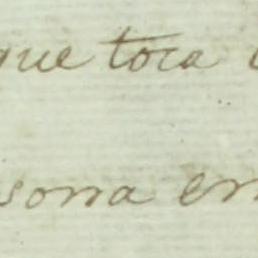 que toca
sona en